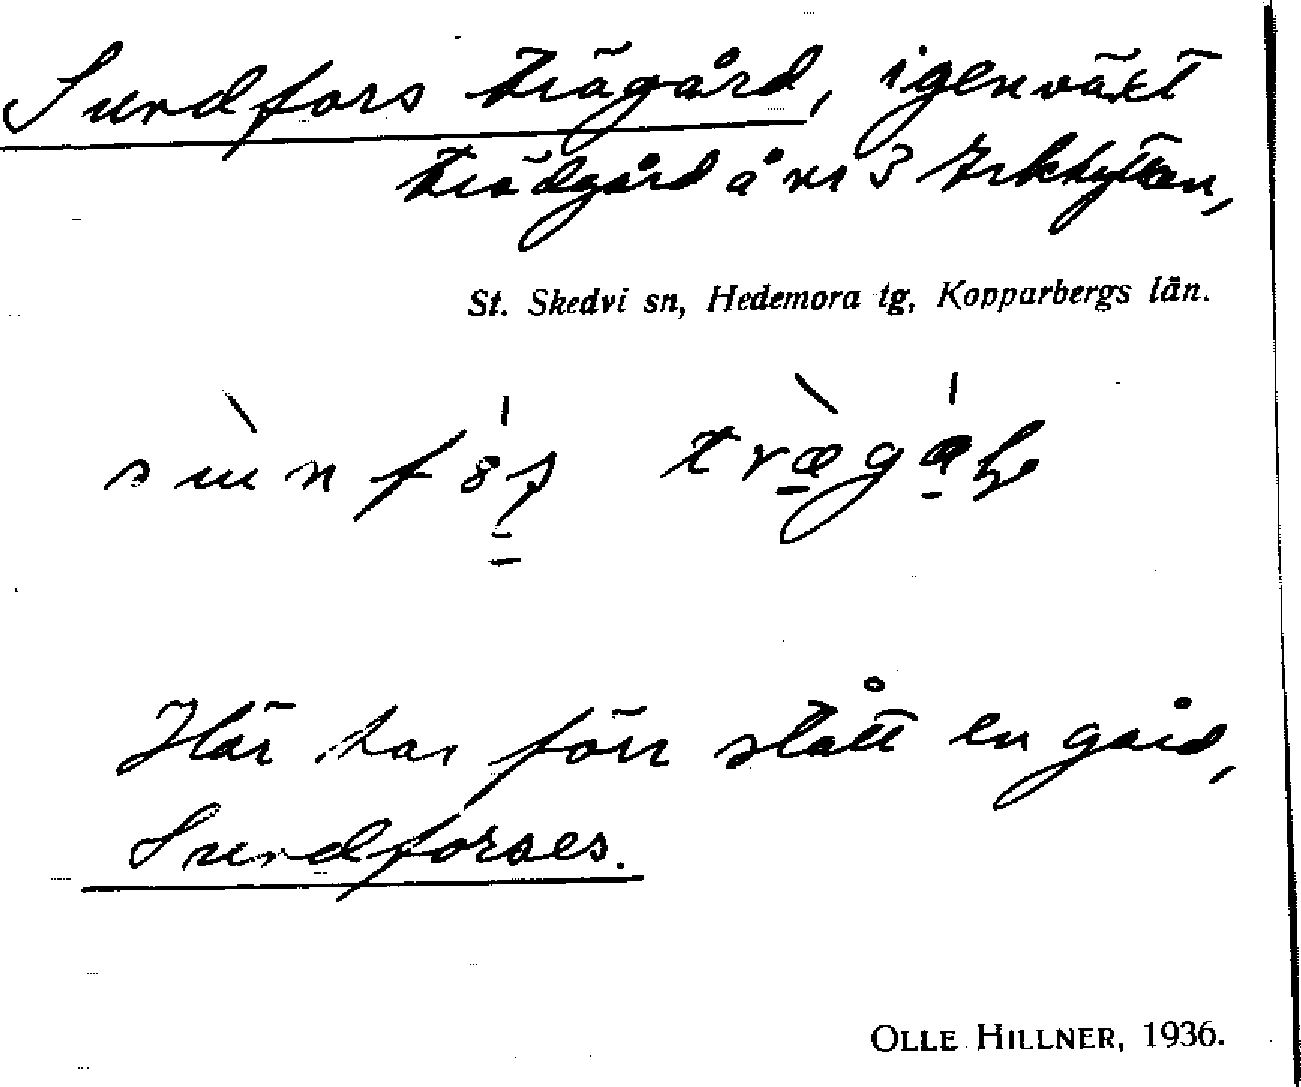 Sundfors trägård, igenväxt
trädgård å nr 3 Arkhyttan,
St. Skedvi sn, Hedemora tg, Kopparbergs län.
Här har förr stått en gård,
Sundforses.
OLLE HILLNER, 1936.